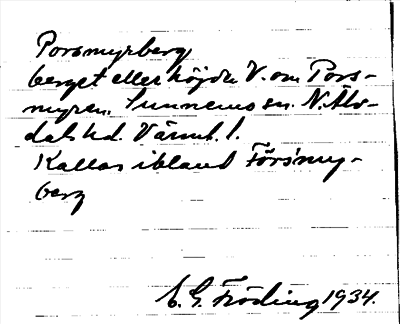 Porsmyrberg
berget eller höjden V. om Pors-
myren. Sunnemo sn. N. Älv-
dals hd. Värml. l.
Kallas iblandFörs'my-
berg
E. G. Fröding 1934.